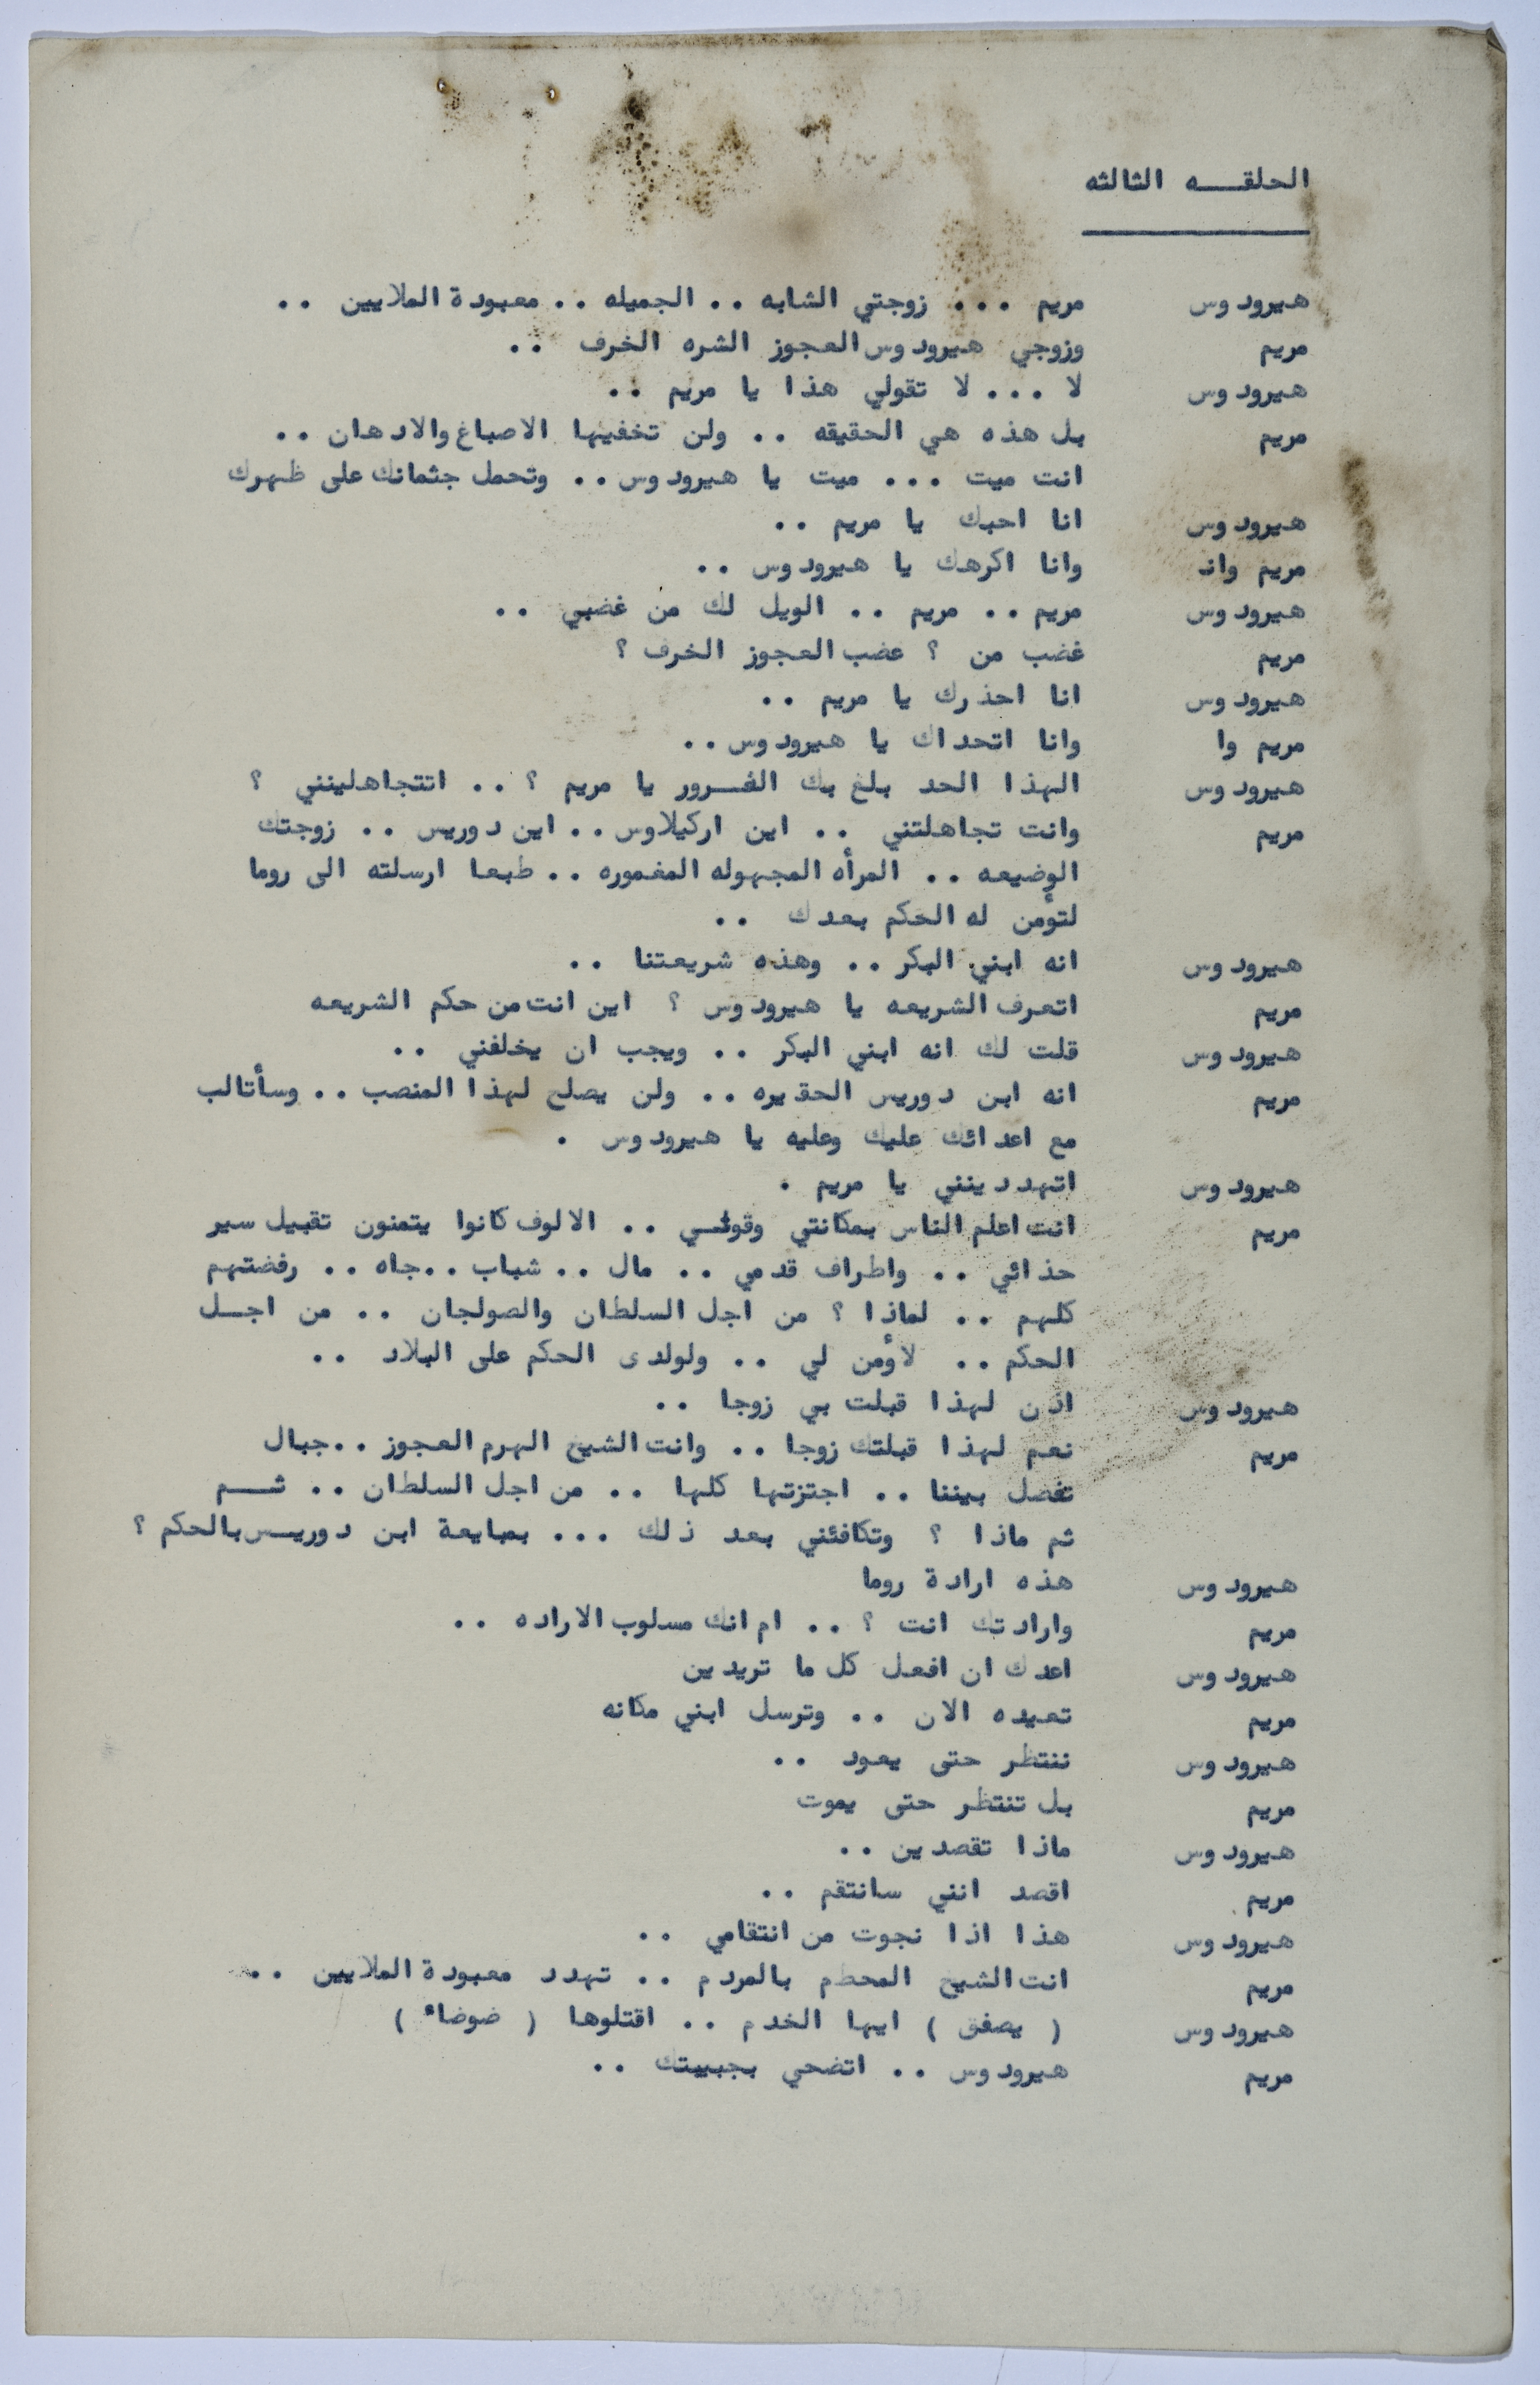 الحلقـــه الثالثه
هيرودوس مريم ... زوجتي الشابه .. الجميله .. معبودة الملايين ..
مريم وزوجي هيرودوس العجوز الشره الخرف ..
هيرودوس لا ... لا تقولي هذا يا مريم ..
مريم بل هذه هي الحقيقه .. ولن تخفينها الاصباغ والادهان ..
انت ميت ... ميت يا هيرودوس .. وتحمل جثمانك على ظهرك
هيرودوس انا احبك يا مريم ..
مريم وانـ وانا اكرهك يا هيرودوس ..
هيرودوس مريم .. مريم .. الويل لك من غضبي ..
مريم غضب من ؟ عضب العجوز الخرف ؟
هيرودوس انا احذرك يا مريم ..
مريم وا وانا اتحداك يا هيرودوس ..
هيرودوس الهذا الحد بلغ بك الغـــرور يا مريم ؟ .. اتتجاهلينني ؟
مريم وانت تجاهلتني .. اين اركيلاوس .. اين دوريس .. زوجتك
الوضيعه .. المرأه المجهوله المغموره .. طبعا ارسلته الى روما
لتؤمن له الحكم بعدك ..
هيرودوس انه ابني البكر .. وهذه شريعتنا ..
مريم اتعرف الشريعه يا هيرودوس ؟ اين انت من حكم الشريعه
هيرودوس قلت لك انه ابني البكر .. ويجب ان يخلفني ..
مريم انه ابن دوريس الحقيره .. ولن يصلح لهذا المنصب .. وسأتالب
مع اعدائك عليك وعليه يا هيرودوس .
هيرودوس اتهددينني يا مريم .
مريم انت اعلم الناس بمكانتي وقوتـــي .. الالوف كانوا يتمنون تقبيل سير
حذائي .. واطراف قدمي .. مال .. شباب ..جاه .. رفضتهم
كلهم .. لماذا ؟ من اجل السلطان والصولجان .. من اجـــل
الحكم .. لاؤمن لي .. ولولدى الحكم على البلاد ..
هيرودوس اذن لهذا قبلت بي زوجا ..
مريم نعم لهذا قبلتك زوجا .. وانت الشيخ الهرم العجوز ..جبال
تفصل بيننا .. اجتزتها كلها .. من اجل السلطان .. ثـــم
ثم ماذا ؟ وتكافئني بعد ذلك ... بمبايعة ابن دوريــس بالحكم ؟
هيرودوس هذه ارادة روما
مريم وارادتك انت ؟ .. ام انك مسلوب الاراده ..
هيرودوس اعدك ان افعل كل ما تريدين
مريم تعيده الان .. وترسل ابني مكانه
هيرودوس ننتظر حتى يعود ..
مريم بل تنتظر حتى يموت
هيرودوس ماذا تقصدين ..
مريم اقصد انني سانتقم ..
هيرودوس هذا اذا نجوت من انتقامي ..
مريم انت الشيخ المحطم بالمردم .. تهدد معبودة الملايين ..
هيرودوس ( يصفق ) ايها الخدم .. اقتلوها ( ضوضاء )
مريم هيرودوس .. اتضحي بجبيبتك ..